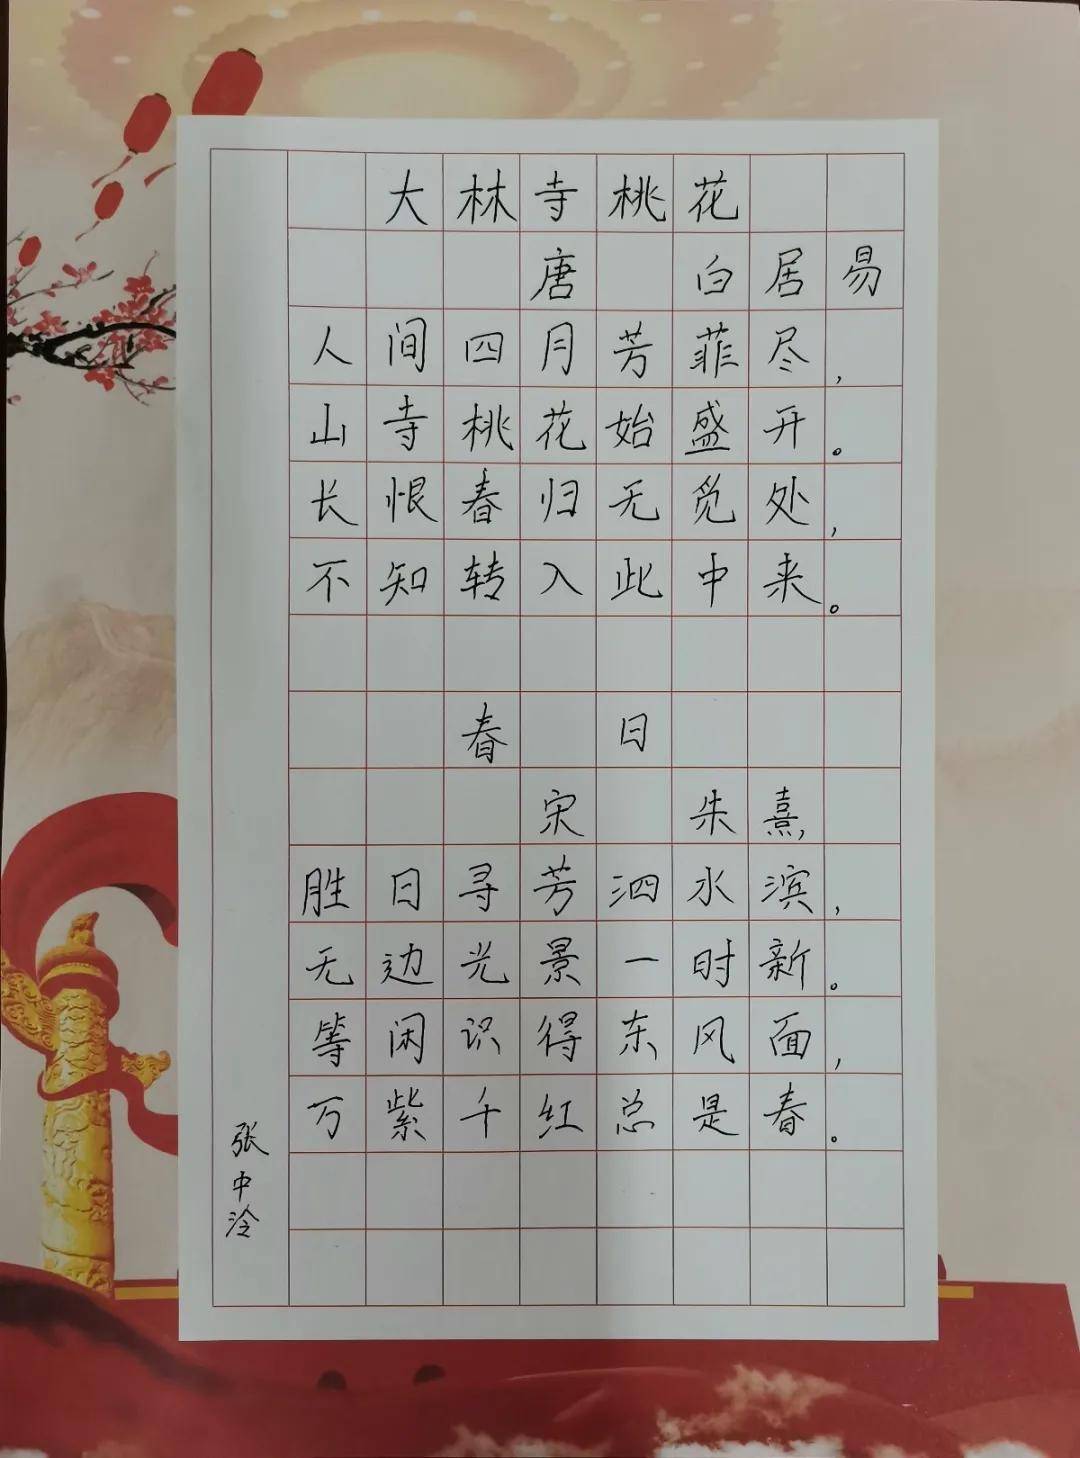 大林寺桃花
唐 白居易
人间四月芳菲尽，
山寺桃花始盛开。
长恨春归无觅处，
不知转入此中来。
春 日
宋 朱熹，
胜日寻芳泗水滨，
无边光景一时新。
等闲识得东风面，
万紫千红总是春。
张中泠